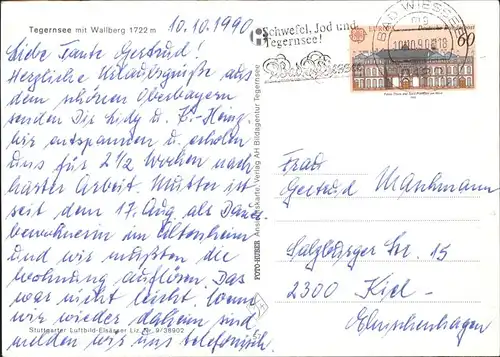 Tegernsee mit Wallberg 1722 m
10.10.1990
Liebe Tante Gertrud!
Herzliche Urlaubsgrüße aus
dem schönen Oberbayern
senden Dir Lidy u. K.-Heinz.
Wir entspannen u. erholen
uns für 2 1/2 Wochen nach
harter Arbeit. Mutter ist
seit dem 17. Aug. als Dauer
bewohnerin im Altenheim
und wir mußten die
Wohnung auflösen. Das
war nicht leicht. Wenn
wir wieder daheim sind
melden wir uns telefonisch.
Stuttgarter Luftbild-Elsäßer Liz. Nr. 9/38902
FOTO-HUBER Ansichtskarte: Verlag AH Bildagentur Tegernsee
Schwefel, Jod und
Tegernsee!
BAD WIESSEE
10.10.90.18
EUROPA
60
Frau
Gertrud
Salzburger Str. 15
2300 Kiel-
Elmschenhagen